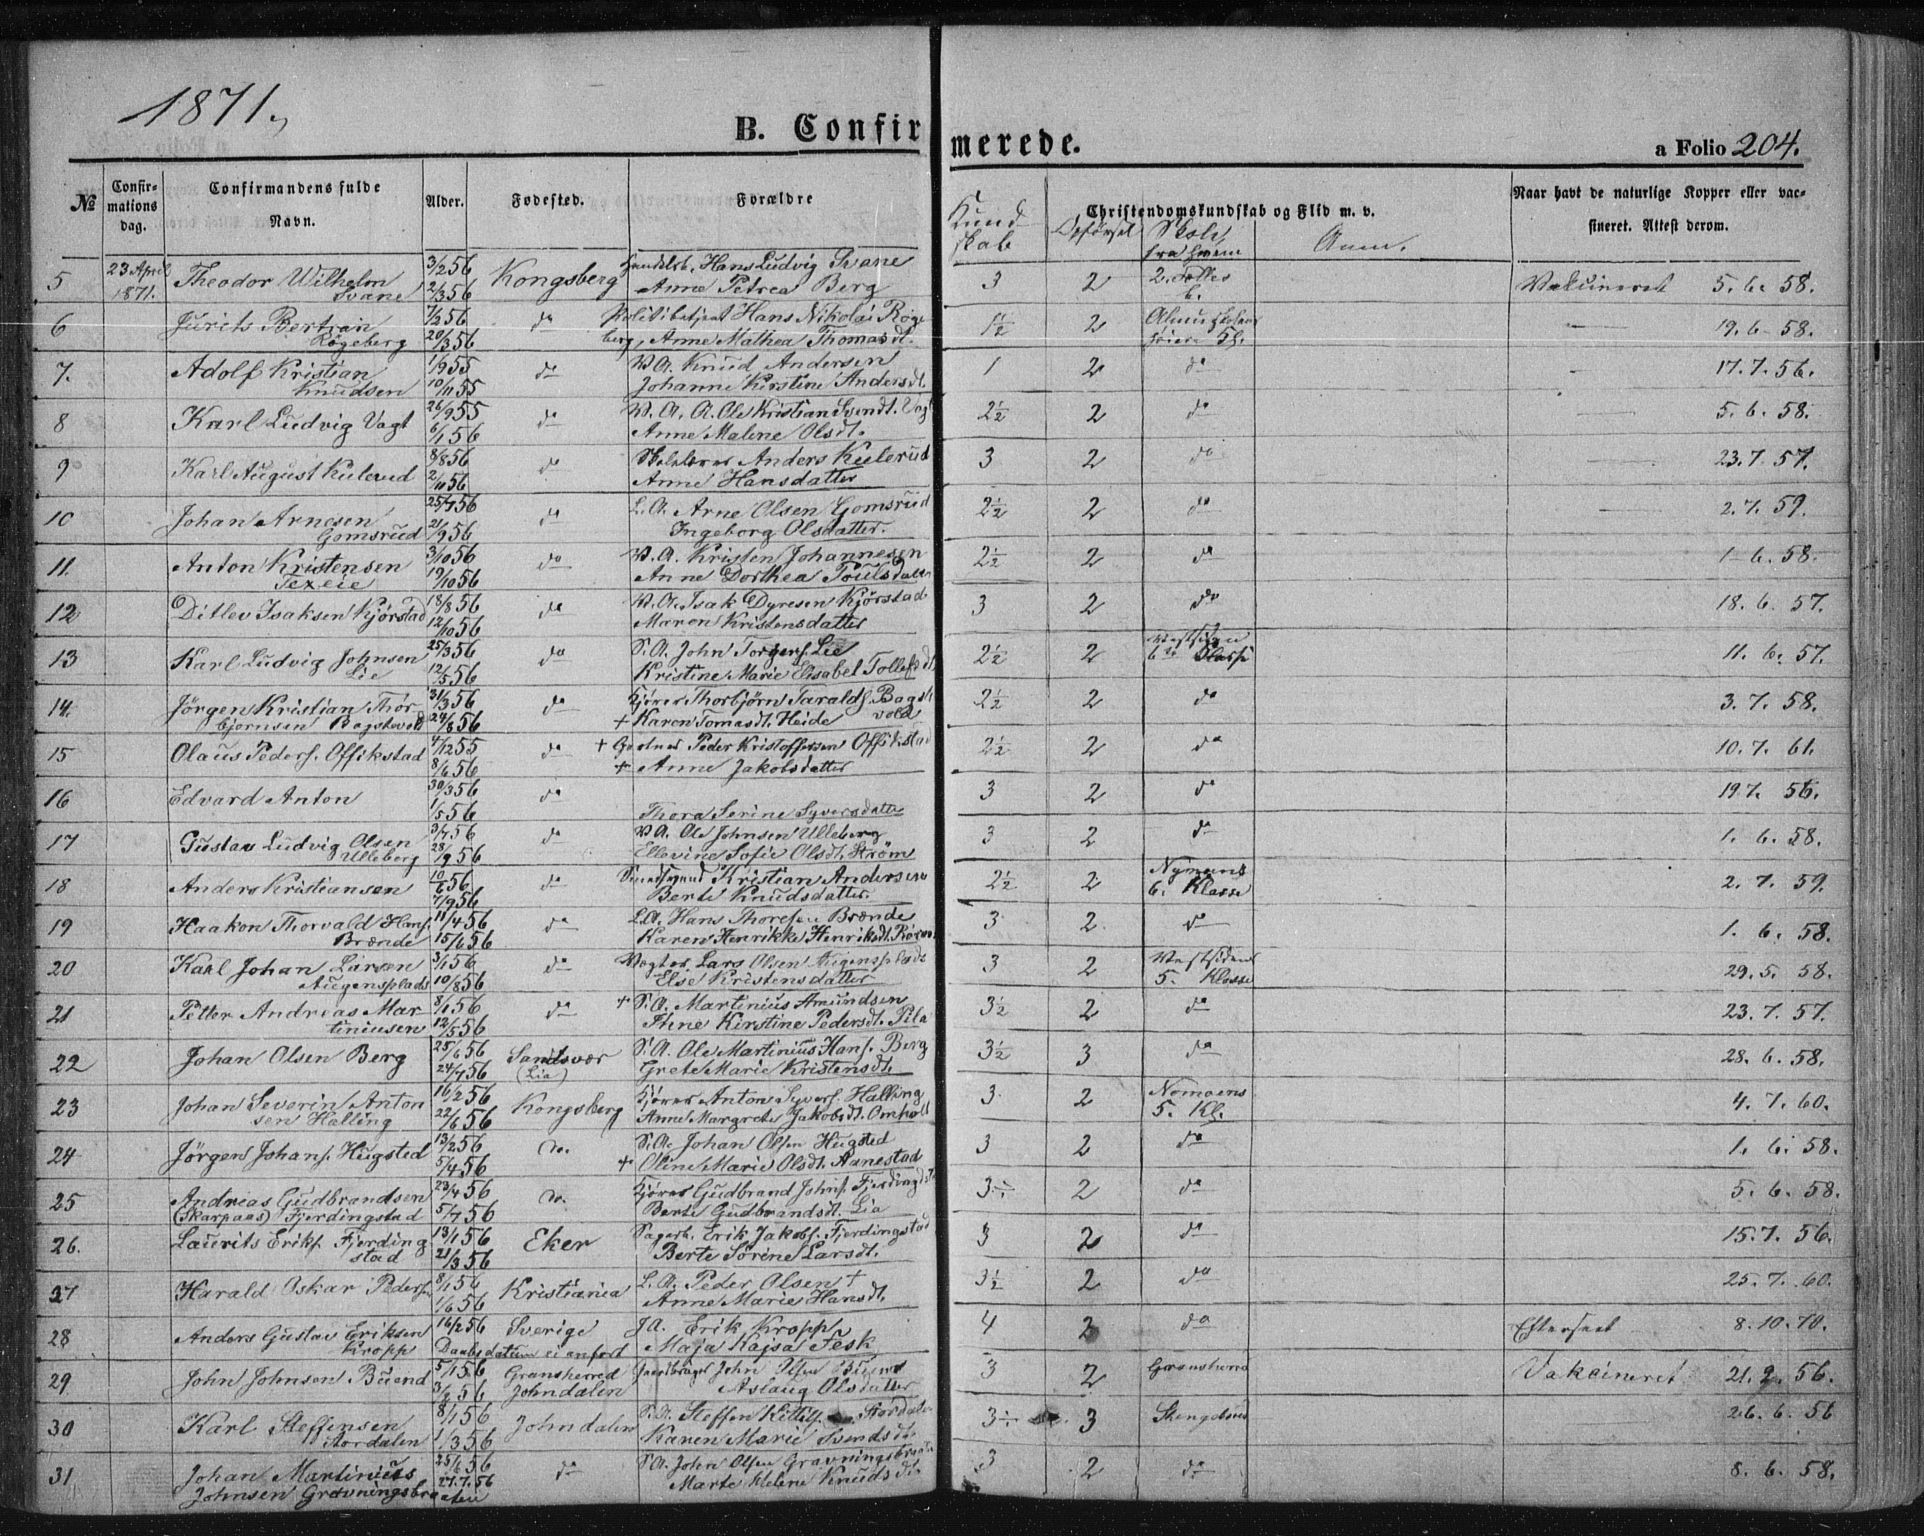 1871.
B. Confirmerede.
a Folio 204.
№ Confirmations dag. Confirmandens fulde Navn. Alder. Fødested. Forældre Kundskab Christendomskundskab og Flid m. v. Opførsel Skole, fra hvem Anm. Naar havt de naturlige Kopper eller vaccineret. Attest derom.
5 23 April 1871. Theodor Wilhelm Svane 3/2 56 2/3 56 Kongsberg Hans Ludvig Svane Anne Petrea Berg 3 2 Vakcineret 5. 6. 58.
6 Bertran Røgeberg 7/2 56 20/3 56 do Politibetjent Hans Nikolai Røgeberg, Anne Mathea Thomasdt. 1½ 2 19. 6 - 58.
7. Adolf Kristian Knudsen 1/9 55 10/11 55 do Knud Andersen Johanne Kirstine Andersdt. 1 2 do 17. 7. 56.
8 Karl Ludvig Vagt 26/9 55 6/1 56 do Ole Kristian Anne Malene Olsdt. 2½ 2 do 5. 6. 58.
9 Karl August Kulerud 8/8 56 2/11 56 do Anders Kulerud Anne Hansdatter 3 2 do 23. 7. 57.
10 Johan Arnesen Gomsrud 25/7 56 21/9 56 do L. A. Arne Olsen Gomsrud Ingeborg Olsdatter. 2½ 2 do 2. 7. 59.
11. Anton Kristensen 3/10 56 19/10 56 do Kristen Johannesen Anne Dorthea 2½ 2 do 1 - 6. 58.
12 Ditlev Isaksen Kjørstad 18/8 56 12/10 56 do Isak Dyresen Kjørstad Maren Kristensdatter 3 2 do 18. 6. 57.
13 Karl Ludvig Johnsen Lie 25/3 56 12/5 56 do S. A. John Torgers. Lie Kristine Marie Elisabet Tollefsdt 2½ 2 Klasse 11. 6. 57.
14. Jørgen Kristian Thorbjørnsen 31/3 56 24/8 56 do Kjører Thorbjørn Taralds. + Karen Tomasdt. Heide 2½ 2 do 3. 7. 58.
15 Olaus Peders. Offikstad 4/12 55 8/6 56 do + Peder Kristoffersen Offikstad + Anne Jakobsdatter 2½ 2 do 10. 7. 61.
16 Edvard Anton 30/3 56 1/5 56 do Thora Serine Syversdatter 3 2 do 19 7. 56.
17 Gustav Ludvig Olsen Ulleberg 3/7 56 28/9 56 do Ole Johnsen Ulleberg Ellevine Sofie Olsdt. Strøm 3 2 do 1. 6. 58.
18 Anders Kristiansen 10/6 56 7/9 56 do Kristian Andersen Berte Knudsdatter. 2½ 2 6. Klasse 2. 7. 59.
19 Haakon Thorvald Hans. Brænde 11/4 56 15/6 56 do L. A. Hans Thoresen Brænde Karen Henrikke Henriksdt. 3 2 do 1. 6. 58.
20 Karl Johan Larsen Augensplads 3/1 56 10/8 56 do Vægter Lars Olsen Augensplads Else Kristensdatter 3 2 Vestsidens 5. Klasse 29. 5. 58.
21 Petter Andreas Martiniusen 8/1 56 12/5 56 do + S. A. Martinius Amundsen Kirstine Pedersdt. 3½ 2 do 23. 7. 57.
22 Johan Olsen Berg 25/6 56 24/7 56 Sandsvær (Lia) S. A. Ole Martinius Hans. Berg Grete Marie Kristensdt. 3½ 3 do 28. 6. 58.
23 Johan Severin Antonsen Halling 16/2 56 22/6 56 Kongsberg Kjører Anton Syvers. Halling Anne Margrete Jakobsdt. Omholt 3 2 5. Kl. 4. 7. 60.
24 Jørgen Johans. Hugsted 13/2 56 5/4 56 S. A. Johan Olsen Hugsted + Oline Marie Olsdt. Aanestad 3 2 do 1. 6. 58.
25 Andreas Gudbrandsen (Skarpaas) Fjerdingstad 23/4 56 5/7 56 Kjører Gudbrand Johns. Berte Gudbrandsdt. Lia 3÷ 2 do 5. 6. 58.
26. Laurits Eriks. Fjerdingstad 13/1 56 21/3 56 Eker Erik Jakobs. Fjerdingstad Berte Sørine Larsdt. 3 2 do 15. 7. 56.
27 Harald Oskar Peders. 8/1 56 1/6 56 Kristiania L. A. Peder Olsen + Anne Marie Hansdt. 3½ 2 do 25. 7. 60.
28 Anders Gustav Eriksen Kropp 16/2 56 Daabsdatum ei anført Sverige J A. Erik Kropp Maja Kajsa Fesk 4 2 do Efterseet 8. 10. 70.
29. John Johnsen Buend 5/1 56 Gransherred Johndalen John Olsen Aslaug Olsdatter 3 2 Gransherred Vakcineret 21. 9. 56.
30 Karl Steffensen Stordalen 8/1 56 1/3 56 Johndalen S. A. Steffen Kittils. Stordalen Karen Marie Svendsdt. 3÷ 3 26. 6. 56
31 Johan Martinius Johnsen Gravningsbraaten 25/6 56 27. 7. 56 do S A. John Olsen Gravningsbraaten Marte Helene Knudsdt. 3 2 do 8. 6. 58.